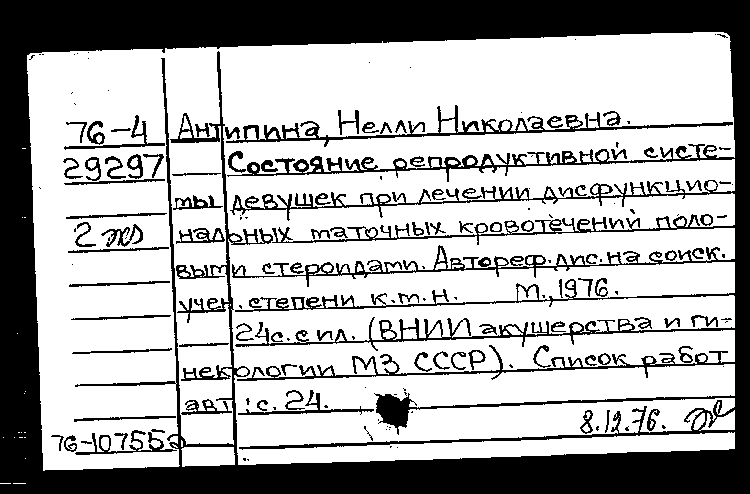 76-4 Антипина, Нелли Николаевна.
29297 Состояние репродуктивной систе-
мы девушек при лечении дисфункцио-
2 экз нальных маточных кровотечений поло-
выми стероидами. Автореф. дис. на соиск.
учен. степени к.м.н. М., 1976.
24с. с ил. (ВНИИ акушерства и ги-
некологии МЗ СССР). Список работ
авт.: с. 24.
8.12.76.
76-107552